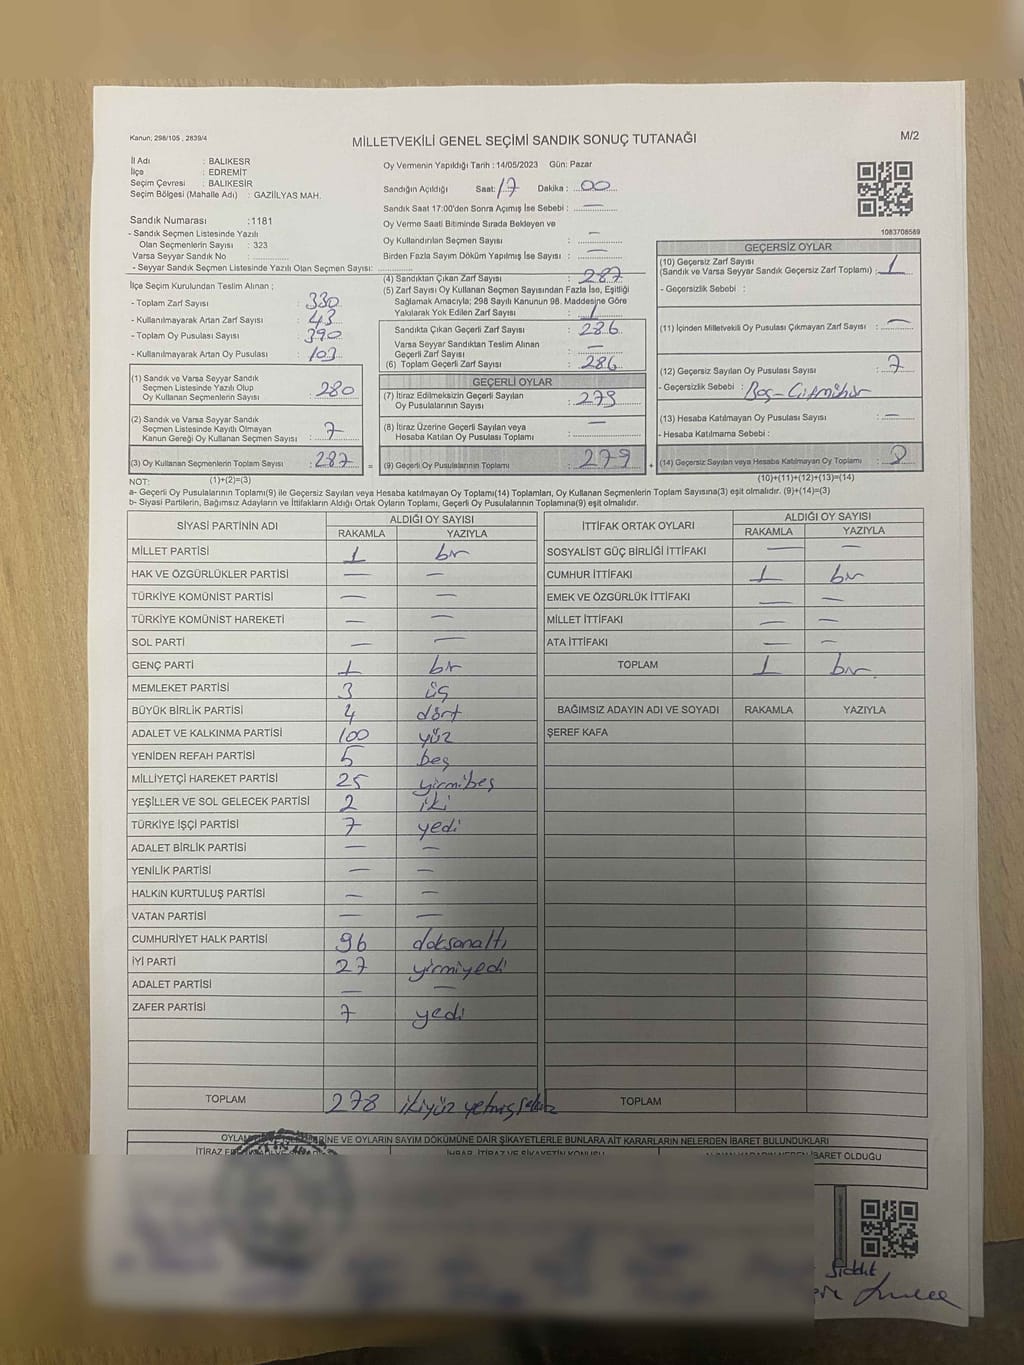 Kanun: 298/105 , 2839/4
MİLLETVEKİLİ GENEL SEÇİMİ SANDIK SONUÇ TUTANAĞI
M/2
İl Adı : BALIKESR
İlçe : EDREMİT
Seçim Çevresi : BALIKESİR
Seçim Bölgesi (Mahalle Adı) : GAZİİLYAS MAH.
Sandık Numarası :1181
- Sandık Seçmen Listesinde Yazılı
Olan Seçmenlerin Sayısı : 323
Varsa Seyyar Sandık No :
- Seyyar Sandık Seçmen Listesinde Yazılı Olan Seçmen Sayısı:
İlçe Seçim Kurulundan Teslim Alınan ;
- Toplam Zarf Sayısı : 330
- Kullanılmayarak Artan Zarf Sayısı : 43
- Toplam Oy Pusulası Sayısı : 390
- Kullanılmayarak Artan Oy Pusulası : 103
(1) Sandık ve Varsa Seyyar Sandık
Seçmen Listesinde Yazılı Olup
Oy Kullanan Seçmenlerin Sayısı : 280
(2) Sandık ve Varsa Seyyar Sandık
Seçmen Listesinde Kayıtlı Olmayan
Kanun Gereği Oy Kullanan Seçmen Sayısı : 7
(3) Oy Kullanan Seçmenlerin Toplam Sayısı : 287 =
(1)+(2)=(3)
Oy Vermenin Yapıldığı Tarih : 14/05/2023 Gün: Pazar
Sandığın Açıldığı Saat: 17 Dakika : 00
Sandık Saat 17:00'den Sonra Açımış İse Sebebi : —
Oy Verme Saati Bitiminde Sırada Bekleyen ve
Oy Kullandırılan Seçmen Sayısı : —
Birden Fazla Sayım Döküm Yapılmış İse Sayısı : —
(4) Sandıktan Çıkan Zarf Sayısı : 287
(5) Zarf Sayısı Oy Kullanan Seçmen Sayısından Fazla İse, Eşitliği
Sağlamak Amacıyla; 298 Sayılı Kanunun 98. Maddesine Göre
Yakılarak Yok Edilen Zarf Sayısı : 1
Sandıkta Çıkan Geçerli Zarf Sayısı : 286
Varsa Seyyar Sandıktan Teslim Alınan
Geçerli Zarf Sayısı : —
(6) Toplam Geçerli Zarf Sayısı : 286
GEÇERLİ OYLAR
(7) İtiraz Edilmeksizin Geçerli Sayılan
Oy Pusulalarının Sayısı : 279
(8) İtiraz Üzerine Geçerli Sayılan veya
Hesaba Katılan Oy Pusulası Toplamı : —
(9) Geçerli Oy Pusulalarının Toplamı : 279 +
1083708589
GEÇERSİZ OYLAR
(10) Geçersiz Zarf Sayısı
(Sandık ve Varsa Seyyar Sandık Geçersiz Zarf Toplamı) : 1
- Geçersizlik Sebebi :
(11) İçinden Milletvekili Oy Pusulası Çıkmayan Zarf Sayısı : —
(12) Geçersiz Sayılan Oy Pusulası Sayısı : 7
- Geçersizlik Sebebi : Boş-Çiftmühür
(13) Hesaba Katılmayan Oy Pusulası Sayısı : —
- Hesaba Katılmama Sebebi :
(14) Geçersiz Sayılan veya Hesaba Katılmayan Oy Toplamı : 8
(10)+(11)+(12)+(13)=(14)
NOT:
a- Geçerli Oy Pusulalarının Toplamı(9) ile Geçersiz Sayılan veya Hesaba katılmayan Oy Toplamı(14) Toplamları, Oy Kullanan Seçmenlerin Toplam Sayısına(3) eşit olmalıdır. (9)+(14)=(3)
b- Siyasi Partilerin, Bağımsız Adayların ve İttifakların Aldığı Ortak Oyların Toplamı, Geçerli Oy Pusulalarının Toplamına(9) eşit olmalıdır.
SİYASİ PARTİNİN ADI ALDIĞI OY SAYISI
RAKAMLA YAZIYLA
MİLLET PARTİSİ 1 bir
HAK VE ÖZGÜRLÜKLER PARTİSİ — —
TÜRKİYE KOMÜNİST PARTİSİ — —
TÜRKİYE KOMÜNİST HAREKETİ — —
SOL PARTİ — —
GENÇ PARTİ 1 bir
MEMLEKET PARTİSİ 3 üç
BÜYÜK BİRLİK PARTİSİ 4 dört
ADALET VE KALKINMA PARTİSİ 100 yüz
YENİDEN REFAH PARTİSİ 5 beş
MİLLİYETÇİ HAREKET PARTİSİ 25 yirmibeş
YEŞİLLER VE SOL GELECEK PARTİSİ 2 iki
TÜRKİYE İŞÇİ PARTİSİ 7 yedi
ADALET BİRLİK PARTİSİ — —
YENİLİK PARTİSİ — —
HALKIN KURTULUŞ PARTİSİ — —
VATAN PARTİSİ — —
CUMHURİYET HALK PARTİSİ 96 doksanaltı
İYİ PARTİ 27 yirmiyedi
ADALET PARTİSİ — —
ZAFER PARTİSİ 7 yedi
TOPLAM 278 ikiyüz yetmişsekiz
İTTİFAK ORTAK OYLARI ALDIĞI OY SAYISI
RAKAMLA YAZIYLA
SOSYALİST GÜÇ BİRLİĞİ İTTİFAKI — —
CUMHUR İTTİFAKI 1 bir
EMEK VE ÖZGÜRLÜK İTTİFAKI — —
MİLLET İTTİFAKI — —
ATA İTTİFAKI — —
TOPLAM 1 bir
BAĞIMSIZ ADAYIN ADI VE SOYADI RAKAMLA YAZIYLA
ŞEREF KAFA
TOPLAM
OYLAMA VE OYLARIN SAYIM DÖKÜMÜNE DAİR ŞİKAYETLERLE BUNLARA AİT KARARLARIN NELERDEN İBARET BULUNDUKLARI
İBARET OLDUĞU